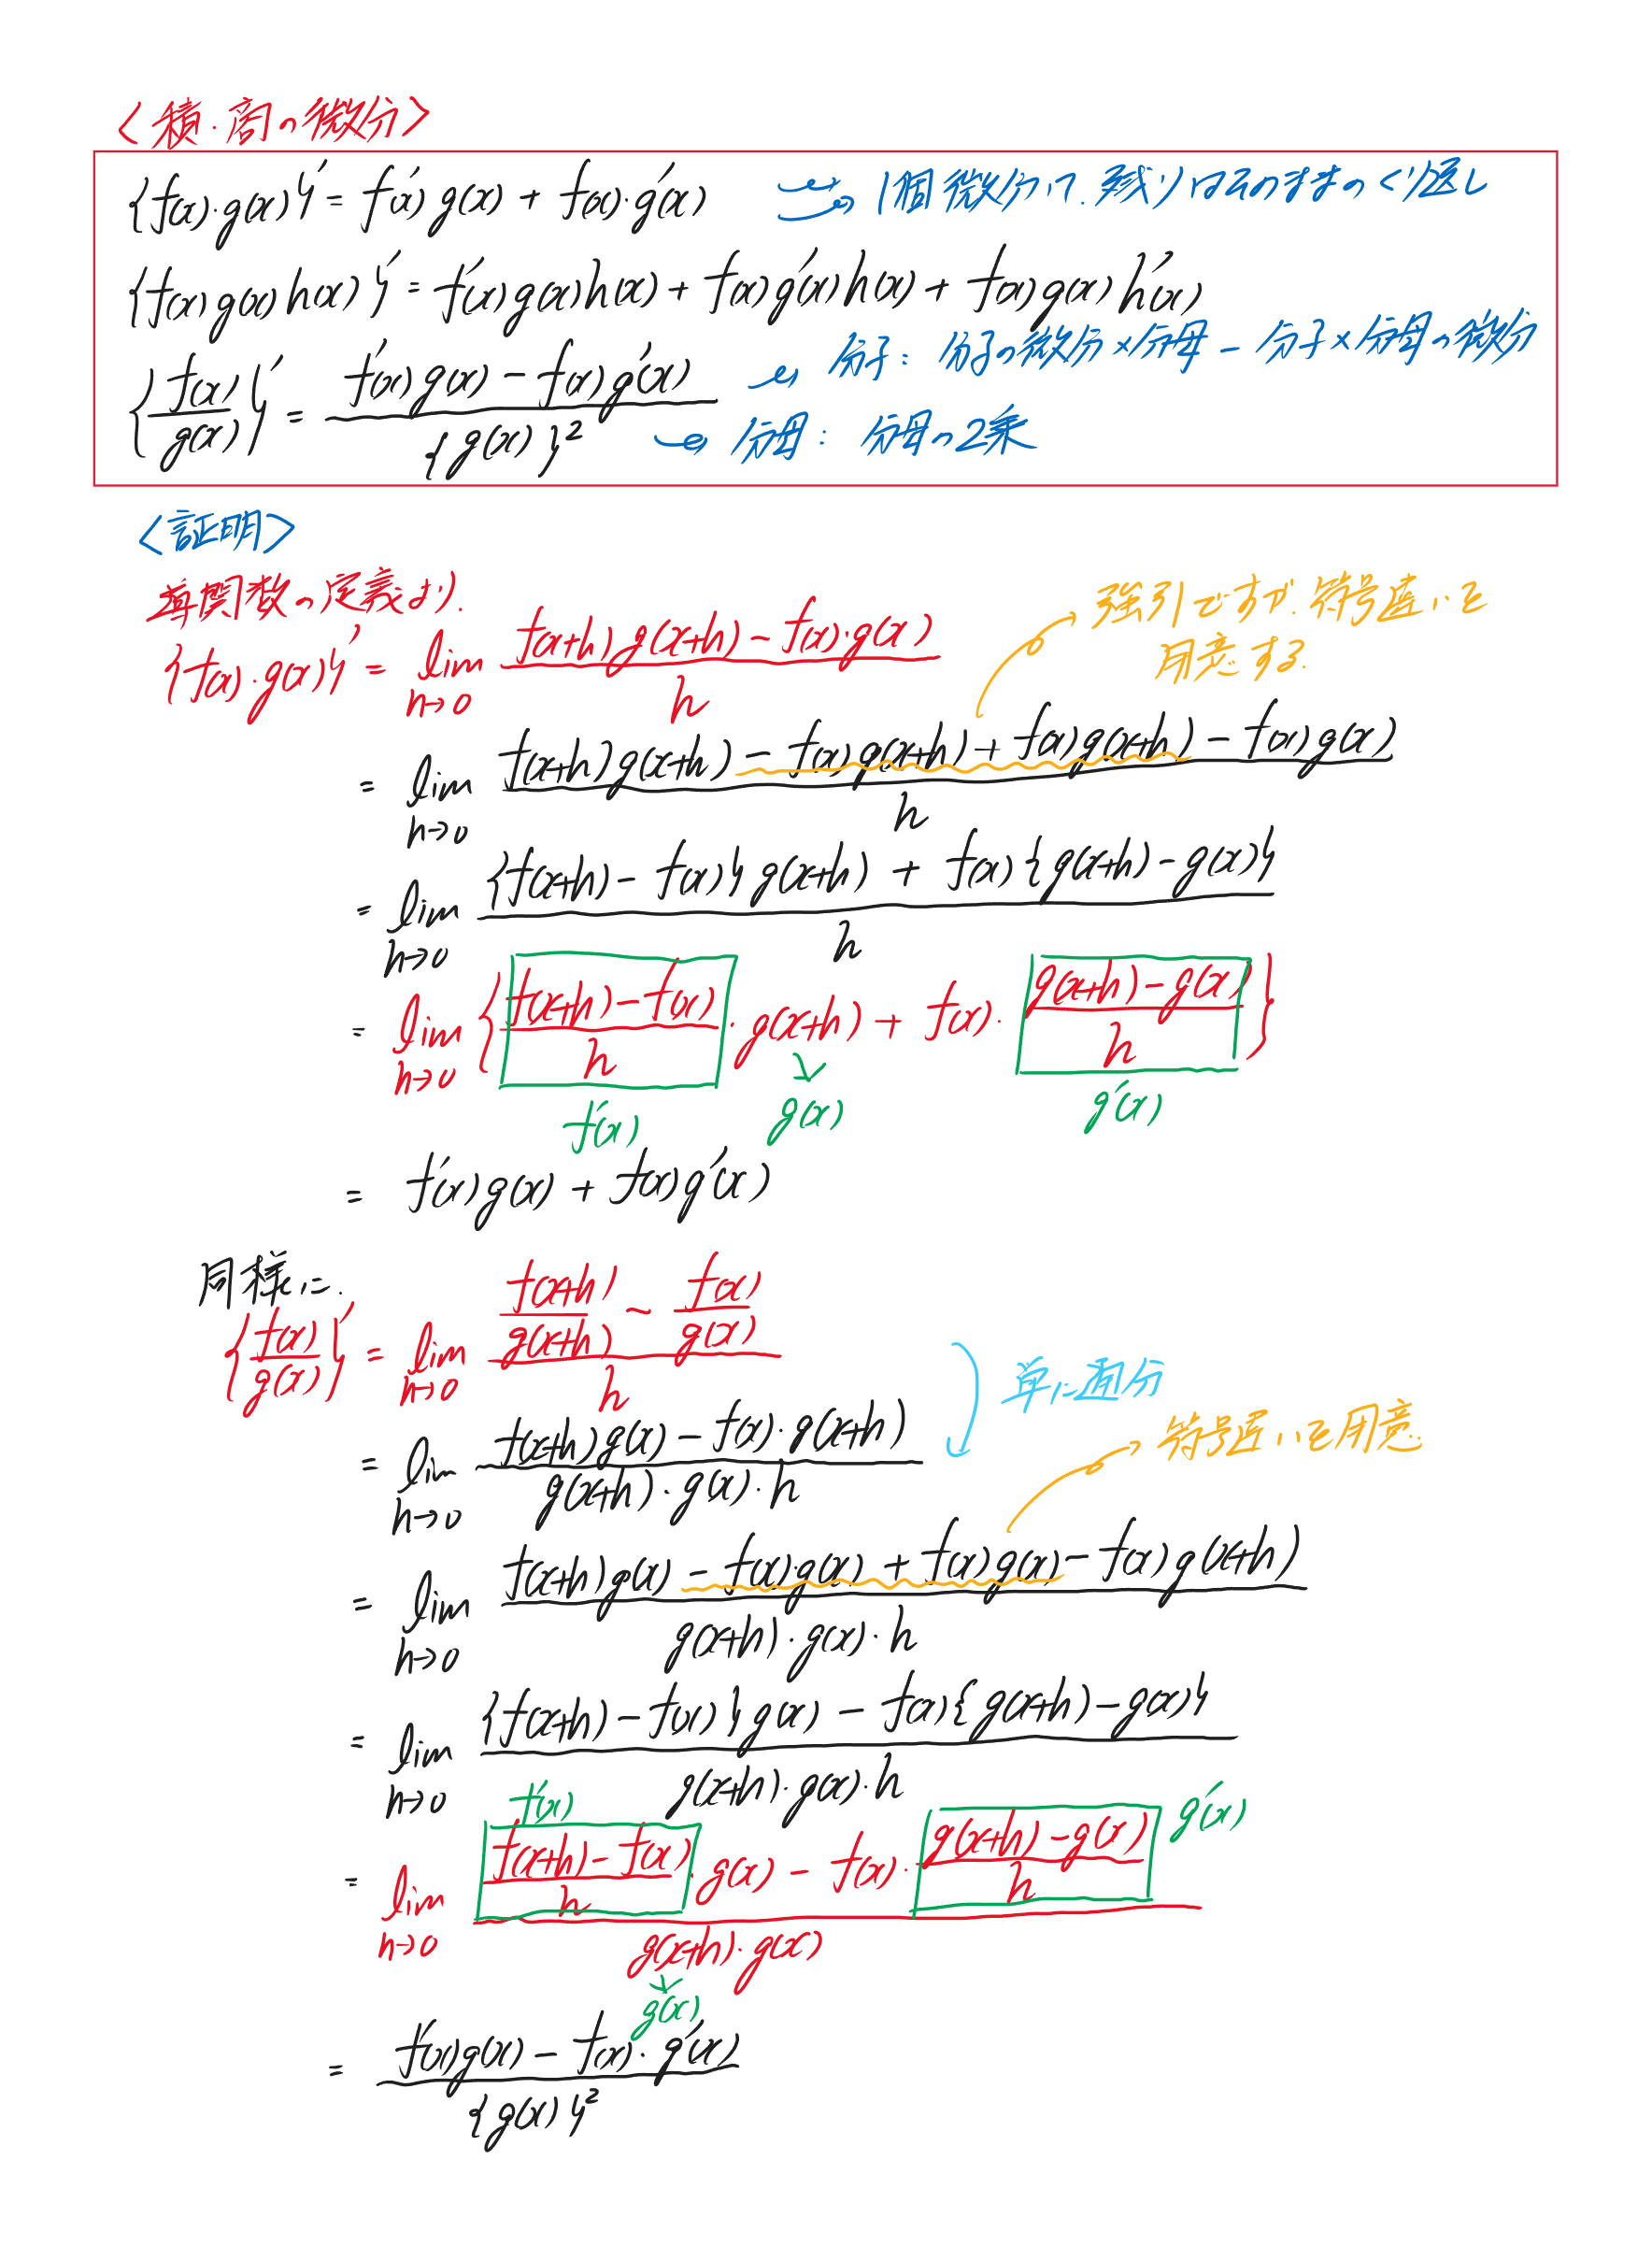 <積・商の微分>
{f(x)・g(x)}' = f'(x)g(x) + f(x)・g'(x) 1個微分して、残りはそのままのくり返し
{f(x)g(x)h(x)}' = f'(x)g(x)h(x) + f(x)g'(x)h(x) + f(x)g(x)h'(x)
{f(x)/g(x)}' = f'(x)g(x) - f(x)g'(x) / {g(x)}² 分子: 分子の微分×分母 - 分子×分母の微分
分母: 分母の2乗
<証明>
導関数の定義より、
{f(x)・g(x)}' = lim h→0 f(x+h)g(x+h) - f(x)・g(x) / h
強引ですが、符号違いを
用意する。
= lim h→0 f(x+h)g(x+h) - f(x)g(x+h) + f(x)g(x+h) - f(x)g(x) / h
= lim h→0 {f(x+h) - f(x)}g(x+h) + f(x){g(x+h) - g(x)} / h
= lim h→0 {f(x+h) - f(x) / h ・g(x+h) + f(x)・ g(x+h) - g(x) / h}
f'(x) g(x) g'(x)
= f'(x)g(x) + f(x)g'(x)
同様に、
{f(x)/g(x)}' = lim h→0 f(x+h)/g(x+h) - f(x)/g(x) / h
単に通分
= lim h→0 f(x+h)g(x) - f(x)・g(x+h) / g(x+h)・g(x)・h
符号違いを用意。
= lim h→0 f(x+h)g(x) - f(x)・g(x) + f(x)g(x) - f(x)g(x+h) / g(x+h)・g(x)・h
= lim h→0 {f(x+h) - f(x)}g(x) - f(x){g(x+h) - g(x)} / g(x+h)・g(x)・h
f'(x) g'(x)
= lim h→0 f(x+h) - f(x) / h ・g(x) - f(x)・ g(x+h) - g(x) / h / g(x+h)・g(x)
g(x)
= f'(x)g(x) - f(x)・g'(x) / {g(x)}²